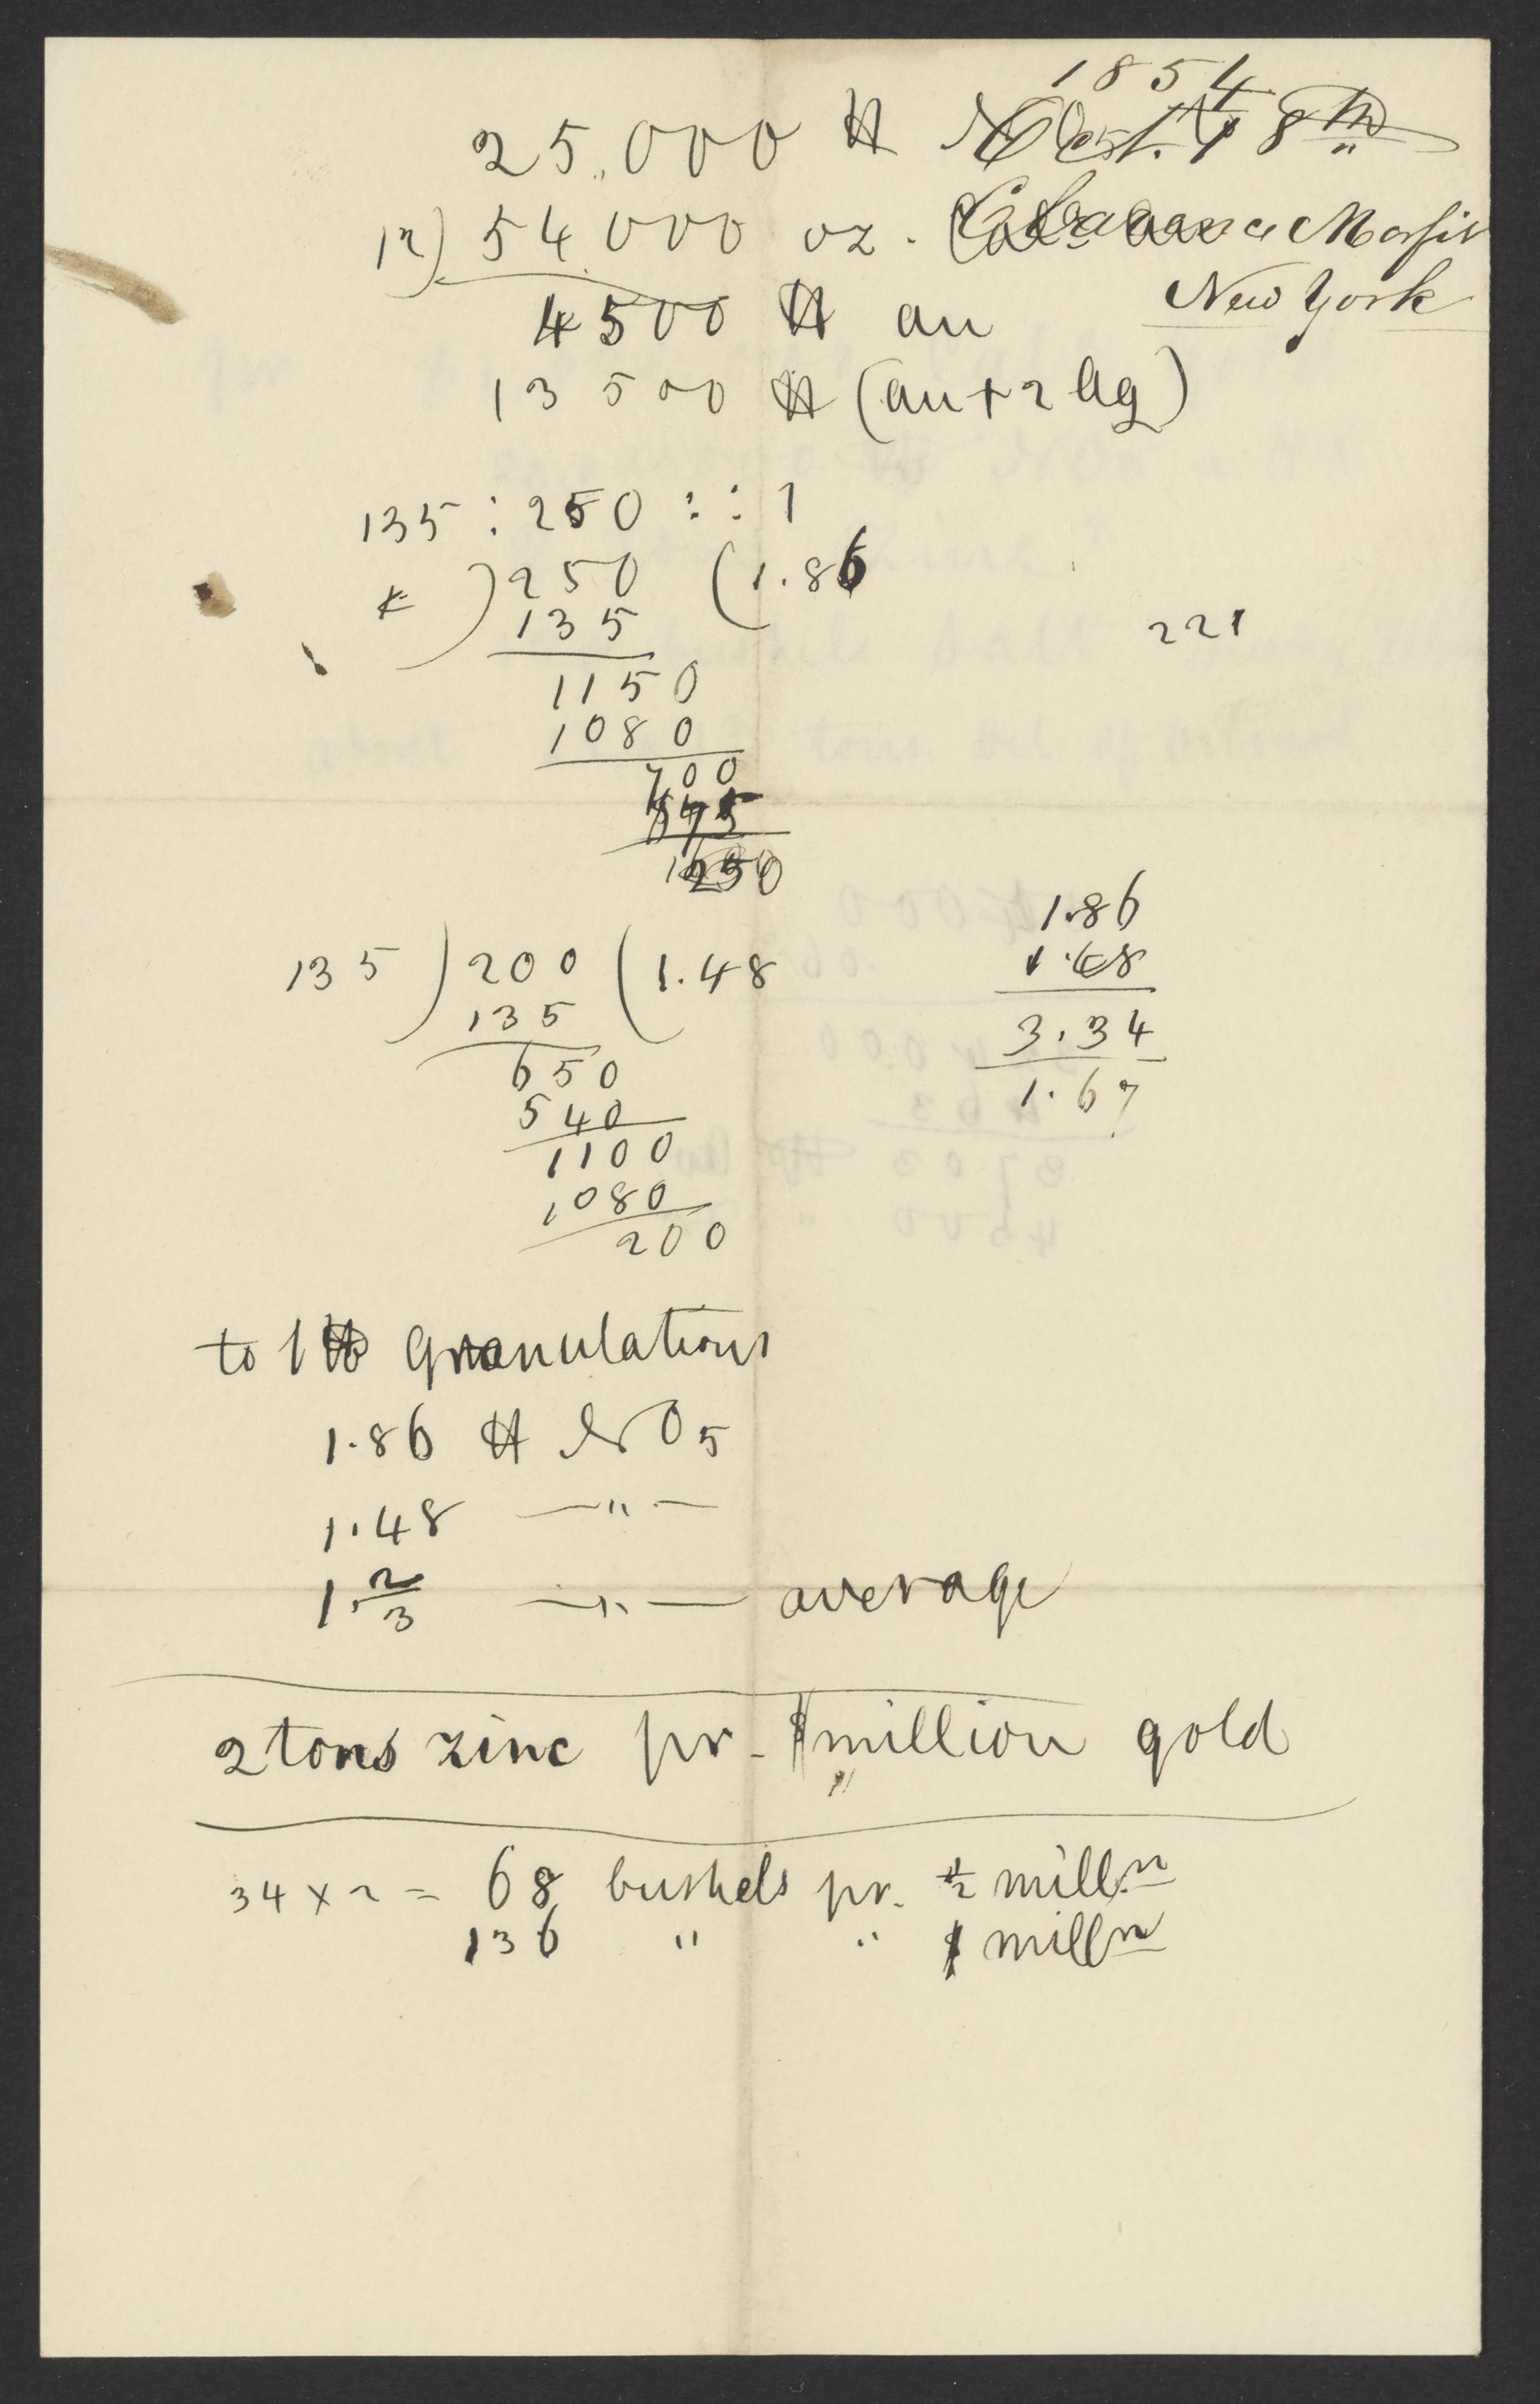 1854
25,000 ℔ NO5 Oct. 18th
12) 54000 oz. Clarence Morfit
New York
4500 ℔ au
13500 ℔ (au + 2 Ag)
135 : 250 : : 1
) 250 (1.86
135
1150
1080
700
221
135 ) 200 ( 1.48
135
650
540
1100
1080
200
1.86
1.48
3.34
1.67
to 1 ℔ Granulations
1.86 ℔ NO5
1.48 — " —
1. 2/3 — " — average
2 tons zinc pr. $ million gold
34 x 2 = 68 bushels pr. 1/2 milln
136 " " 1 milln